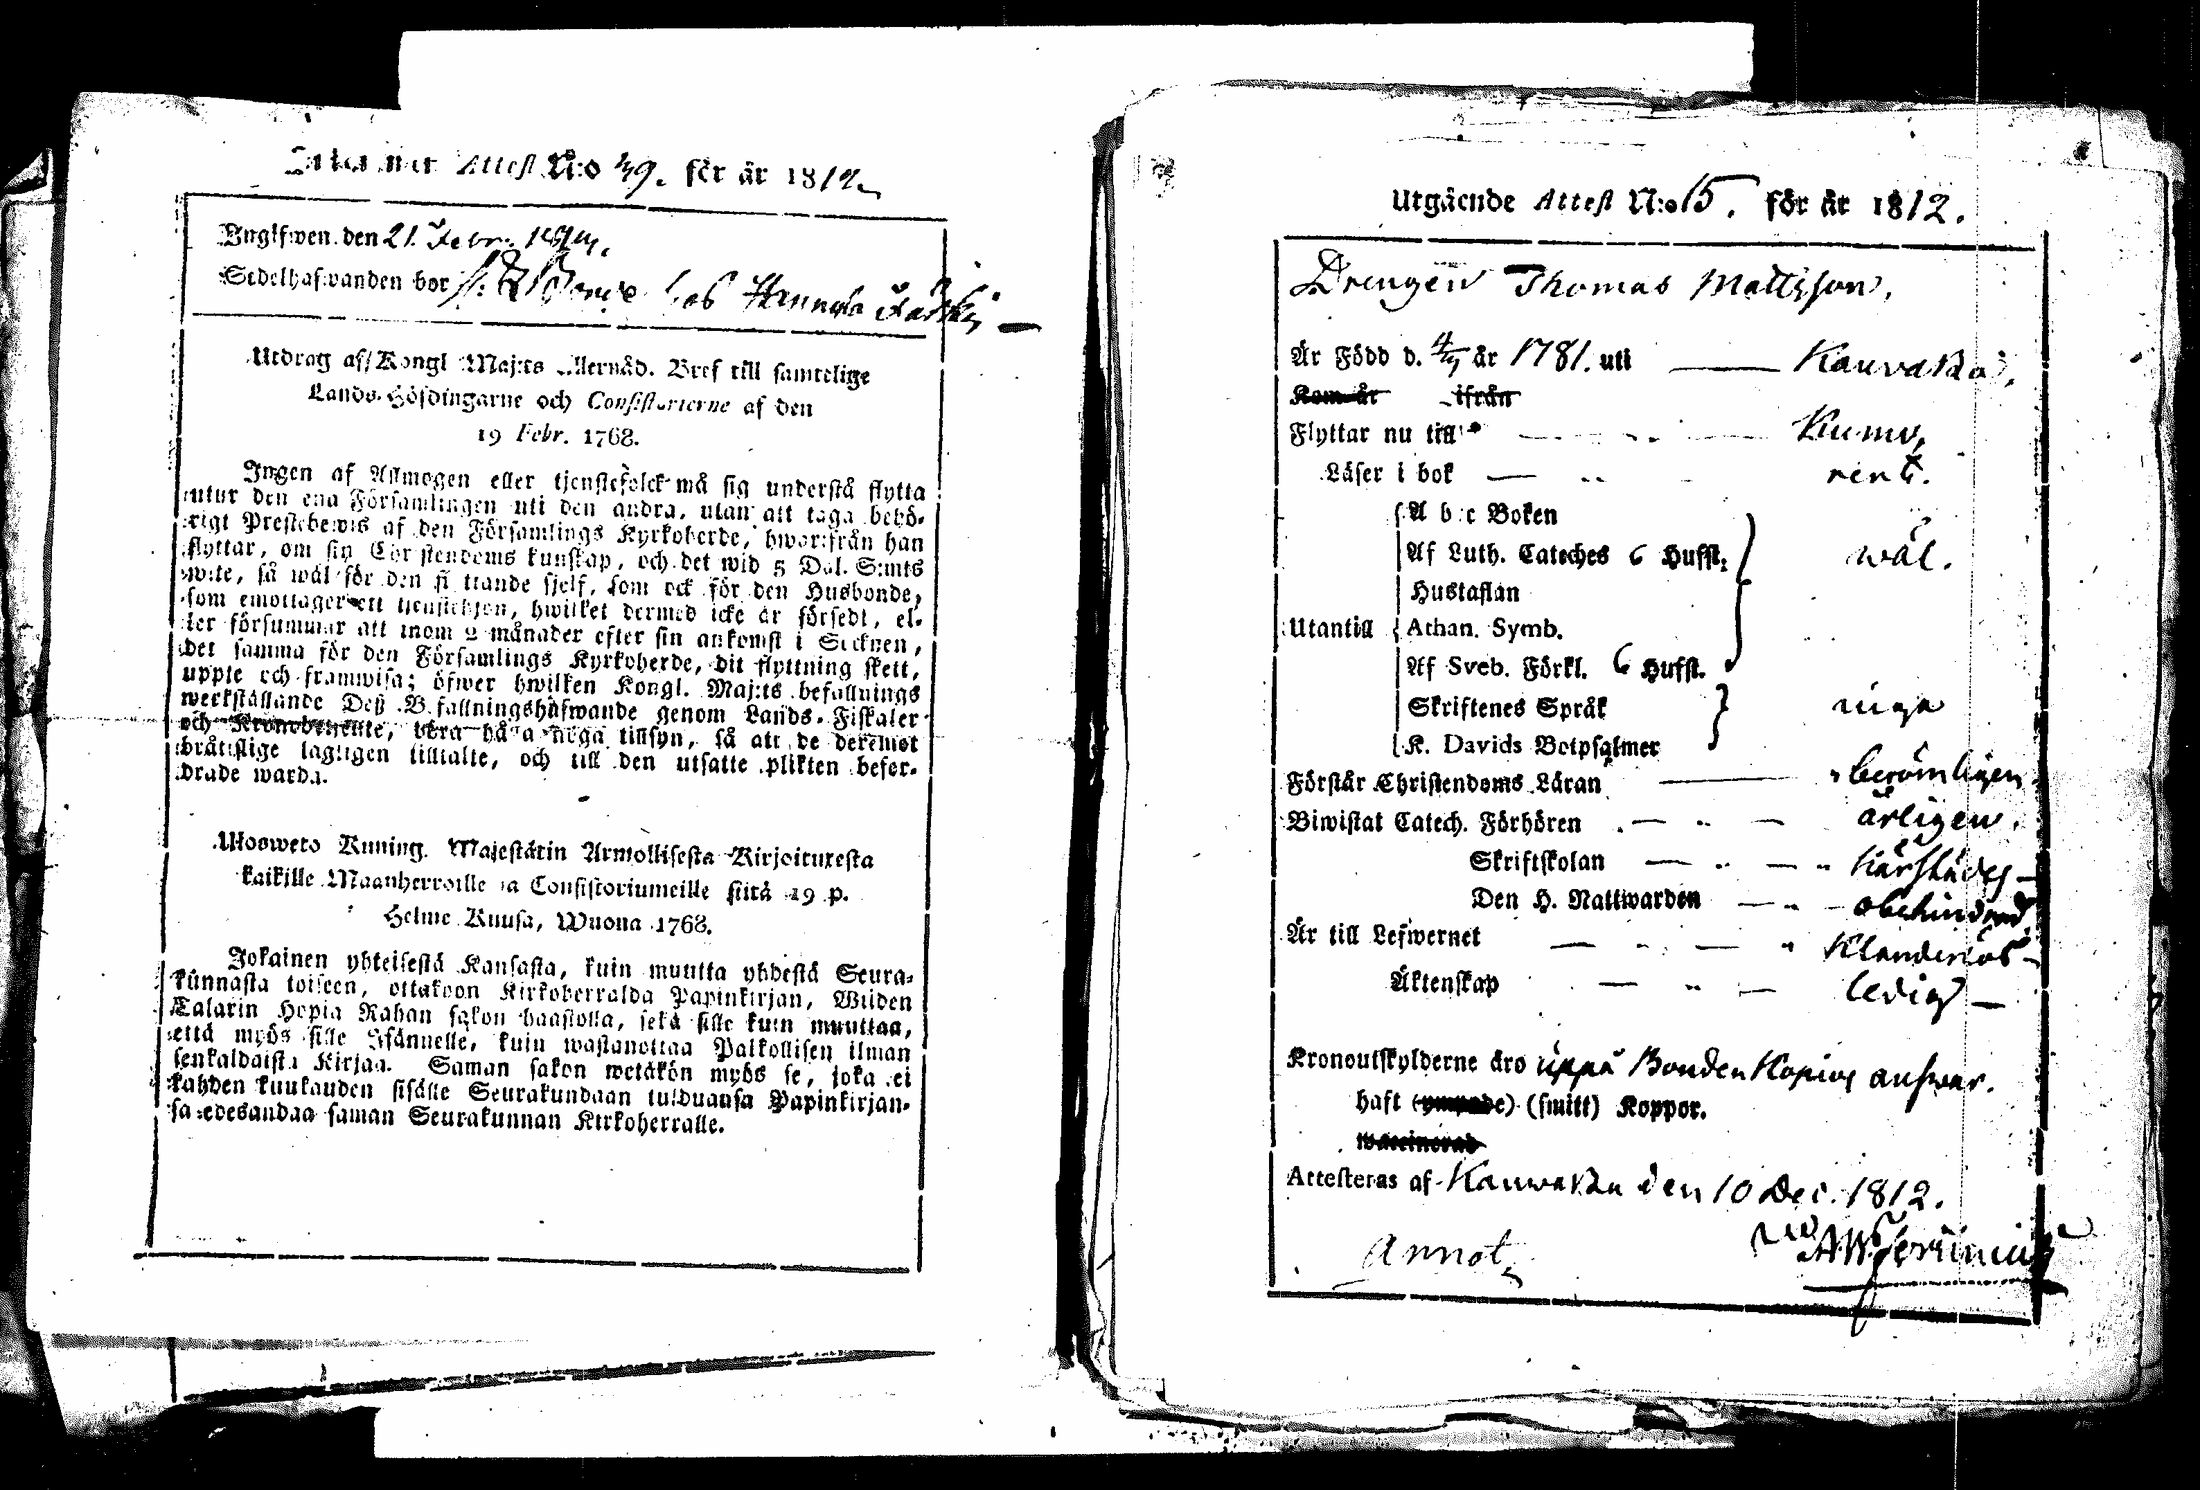 Attest N:o 49. för år 1812
Ingifwen den 21. Febr.
Sedelhafwanden bor hos
Utdrag af Kongl Maj:ts Allernåd. Bref till samtelige
Lands-Höfdingarne och Consistorierne af den
19 Febr. 1768.
Ingen af Allmogen eller tjenstefolck må sig understå flytta
utur den ena Församlingen uti den andra, utan att taga behö-
rigt Prestebewis af den Församlings Kyrkoherde, hwarifrån han
flyttar, om sin Christendoms kunskap, och det wid 5 Dal. S:mts
wite, så wäl för den flyttande sjelf, som ock för den Husbonde,
som emottager ett tjenstehjon, hwilket dermed icke är försedt, el-
ler försummar att inom 2 månader efter sin ankomst i Socknen,
det samma för den Församlings Kyrkoherde, dit flyttning skett,
uppte och framwisa; öfwer hwilken Kongl. Maj:ts befallnings
werkställande Deß Befallningshafwande genom Lands-Fiskaler
och Kronobetjente, böra hafwa noga tillsyn, så att de deremot
bråttslige lagligen tilltalte, och till den utsatte plikten befor-
drade warda.
Ulosweto Kuning. Majestätin Armollisesta Kirjoituxesta
kaikille Maanherroille ja Consistoriumeille siitä 19 p.
Helme Kuusa, Wuona 1768.
Jokainen yhteisestä Kansasta, kuin muutta yhdestä Seura-
kunnasta toiseen, ottakoon Kirkoherralda Papinkirjan, Wiiden
Talarin Hopia Rahan sakon haastolla, sekä sille kuin muuttaa,
että myös sille Isännelle, kuin wastanottaa Palkollisen ilman
senkaldaista Kirjaa. Saman sakon wetäkön myös se, joka ei
kahden kuukauden sisälle Seurakundaan tulduansa Papinkirjan-
sa edesandaa saman Seurakunnan Kirkoherralle.
Utgående Attest N:o 15. för år 1812.
Drengen Thomas Mattsson,
Är Född d. 4/4 år 1781. uti — Kauvatsa,
Kom år ifrån
Flyttar nu till — Kumo,
Läser i bok — rent.
A b c Boken
Af Luth. Cateches 6 Hufst. wäl.
Hustaflan
Utantill Athan. Symb.
Af Sveb. Förkl. 6 Hufst.
Skriftenes Språk inga
K. Davids Botpsalmer
Förstår Christendoms Läran — berömligen
Biwistat Catech. Förhören — årligen.
Skriftskolan — härstädes —
Den H. Nattwarden — obehindrad
Är till Lefwernet — klanderlös —
Äktenskap — ledig —
Kronoutskylderne äro uppå Bonden answar.
haft (ympade) (smitt) Koppor.
waccinerad
Attesteras af Kauwatsa den 10 Dec. 1812.
Annot.